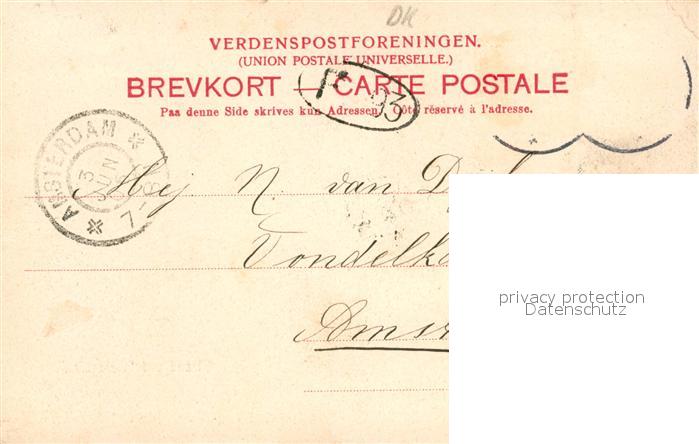 DK
VERDENSPOSTFORENINGEN.
(UNION POSTALE UNIVERSELLE.)
BREVKORT — CARTE POSTALE
Paa denne Side skrives kun Adressen. Côté réservé à l'adresse.
93
AMSTERDAM
3 JUN
7-8
Mej N. van D
Vondelka
Ams
privacy protection
Datenschutz